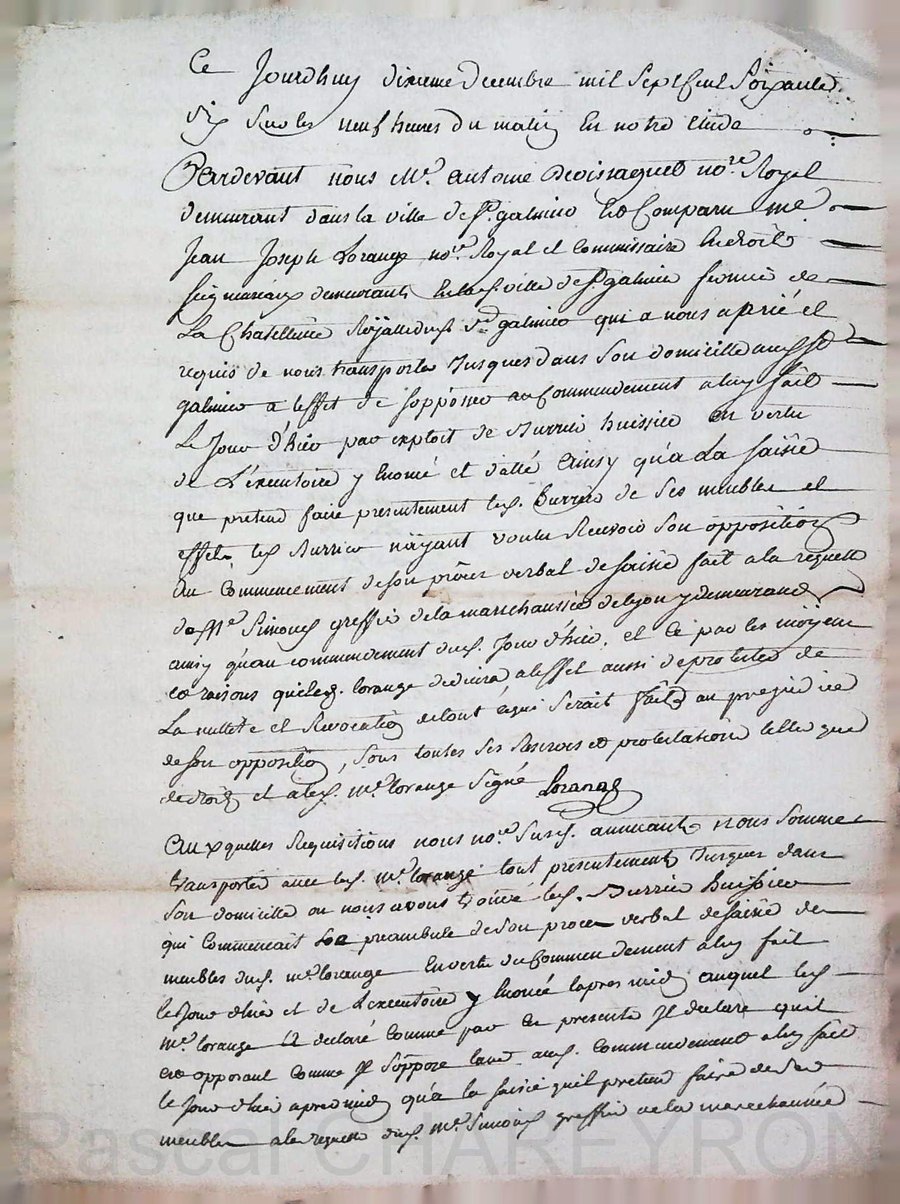 Ce Jourdhuy dixieme decembre mil Sept Cent Soixante
dix Sur les neuf heures du matin En notre Etude
Pardevant nous Me. antoine Devissaguet nore. Royal
demeurant dans la ville de St galmier Est Comparu me
Jean Joseph Lorange nore. Royal et Commissaire En droits
Seigneuriaux demeurant En lad. ville de St galmier fermier de
La Chatellenie Royalle dud. St galmier qui a nous a prié et
requis de nous transporter Jusques dans Son domicille aud. St
galmier a leffet de Sopposer au Commendement a luy fait
Le Jour d'hier par exploit de Burrier huissier en vertu
de L'exécutoire y Enoncé et datté Ainsy qu'a La Saisie
que pretend faire presentement led. Burrier de Ses meubles et
effets led. Burrier n'ayant voulu Recevoir Son opposition
au Commencement de Son procés verbal de Saisie fait a la requette
de Me Simond greffier de la marechaussée de lyon y demeurant
ainsy qu'au commendement dud. Jour d'hier, et Ce par les moyens
et raisons que led. lorange deduira a leffet aussi de protester de
La nullité et Revocation de tout Cequi Serait fait au prejudice
de Son opposition, Sous toutes Ses Reserves et protestations telles que
de droit et a led. me. lorange Signé Lorange
Auxquelles Requisitions nous nore. Susd. annuant, Nous Sommes
transporté avec led. me. lorange tout presentement Jusques dans
Son domicille ou nous avons trouvé led. Burrier huissier
qui Commencait le preambule de Son proces verbal de Saisie des
meubles dud. me. lorange En vertu du Commendement a luy fait
le Jour d'hier et de L'exécutoire y Enoncé lapres midy auquel led.
me. lorange a declaré Comme par Ces presentes Il declare quil
est opposant Comme Il Soppose tant aud. Commendement a luy fait
le Jour d'hier apres midy qu'a la Saisie quil pretend faire de Ses
meubles a la requette dud. me. Simond greffier de la marechaussée
Pascal CHAREYRON